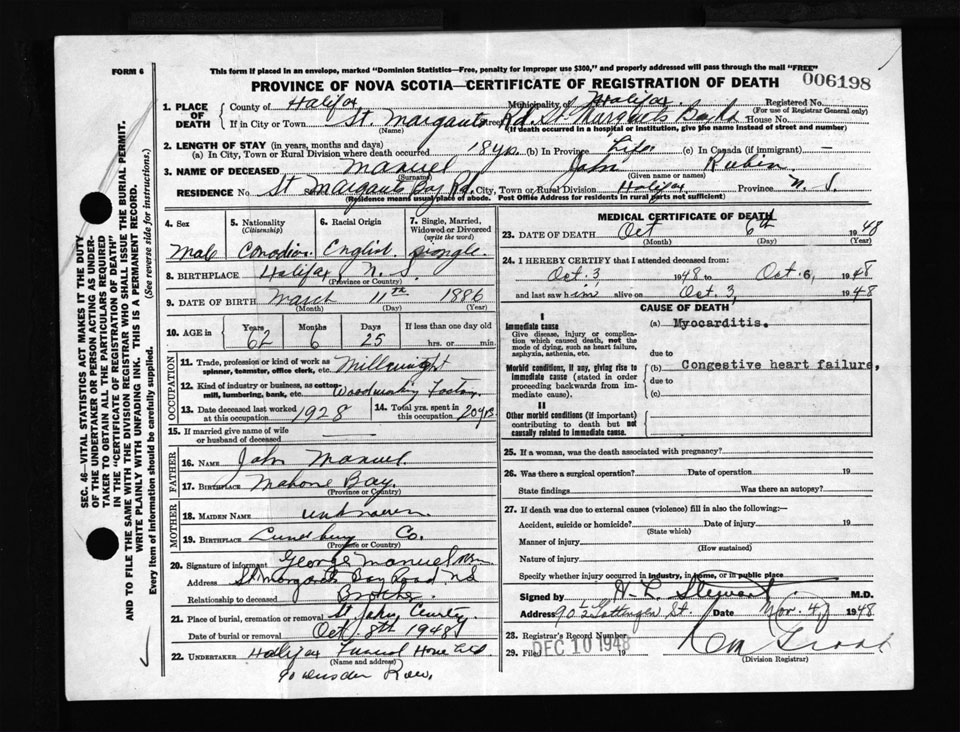 FORM 6
This form if placed in an envelope, marked "Dominion Statistics—Free, penalty for improper use $300," and properly addressed will pass through the mail "FREE"
PROVINCE OF NOVA SCOTIA—CERTIFICATE OF REGISTRATION OF DEATH
006198
1. PLACE OF DEATH
County of Halifax Municipality of Halifax Registered No.
(For use of Registrar General only)
If in City or Town St. Margarets Street Rd. St. Margarets Bay Rd House No.
(Name) (If death occurred in a hospital or institution, give the name instead of street and number)
2. LENGTH OF STAY (in years, months and days)
(a) In City, Town or Rural Division where death occurred 18 yrs. (b) In Province Life (c) In Canada (if immigrant) —
3. NAME OF DECEASED Manuel John Rubin
(Surname) (Given name or names)
RESIDENCE No. St Margarets Bay Rd. City, Town or Rural Division Halifax Province N. S.
(Residence means usual place of abode. Post Office Address for residents in rural parts not sufficient)
4. Sex
Male
5. Nationality
(Citizenship)
Canadian
6. Racial Origin
English
7. Single, Married, Widowed or Divorced
(write the word)
Single
8. BIRTHPLACE Halifax N. S.
(Province or Country)
9. DATE OF BIRTH March 11th 1886
(Month) (Day) (Year)
10. AGE in Years Months Days If less than one day old
62 6 25 hrs. or min.
OCCUPATION
11. Trade, profession or kind of work as spinner, teamster, office clerk, etc. Millwright
12. Kind of industry or business, as cotton mill, lumbering, bank, etc. Woodworking Factory
13. Date deceased last worked at this occupation 1928
14. Total yrs. spent in this occupation 20 yrs
15. If married give name of wife or husband of deceased —
FATHER
16. NAME John Manuel
17. BIRTHPLACE Mahone Bay.
(Province or Country)
MOTHER
18. MAIDEN NAME unknown
19. BIRTHPLACE Lunenburg Co.
(Province or Country)
20. Signature of informant George Manuel
Address St. Margarets Bay Road N S
Relationship to deceased Brother
21. Place of burial, cremation or removal St Johns
Date of burial or removal Oct. 8th 1948
22. UNDERTAKER Halifax Funeral Home
(Name and address)
Row.
MEDICAL CERTIFICATE OF DEATH
23. DATE OF DEATH Oct 6th 1948
(Month) (Day) (Year)
24. I HEREBY CERTIFY that I attended deceased from:
Oct. 3 1948 to Oct. 6, 1948
and last saw him alive on Oct. 3, 1948
CAUSE OF DEATH
I
Immediate cause
Give disease, injury or complication which caused death, not the mode of dying, such as heart failure, asphyxia, asthenia, etc.
(a) Myocarditis.
due to
Morbid conditions, if any, giving rise to immediate cause (stated in order proceeding backwards from immediate cause).
(b) Congestive heart failure,
due to
(c)
II
Other morbid conditions (if important) contributing to death but not causally related to immediate cause.
25. If a woman, was the death associated with pregnancy?
26. Was there a surgical operation? Date of operation 19
State findings Was there an autopsy?
27. If death was due to external causes (violence) fill in also the following:—
Accident, suicide or homicide? Date of injury 19
(State which)
Manner of injury
(How sustained)
Nature of injury
Specify whether injury occurred in industry, in home, or in public place
Signed by H. L. Stewart M.D.
Address 90 1/2 Gottingen St. Date Nov. 4 1948
28. Registrar's Record Number
29. Filed DEC 10 1948 19
(Division Registrar)
SEC. 46—VITAL STATISTICS ACT MAKES IT THE DUTY OF THE UNDERTAKER OR PERSON ACTING AS UNDERTAKER TO OBTAIN ALL THE PARTICULARS REQUIRED IN THE "CERTIFICATE OF REGISTRATION OF DEATH" AND TO FILE THE SAME WITH THE DIVISION REGISTRAR WHO SHALL ISSUE THE BURIAL PERMIT.
WRITE PLAINLY WITH UNFADING INK. THIS IS A PERMANENT RECORD.
Every item of information should be carefully supplied. (See reverse side for instructions.)